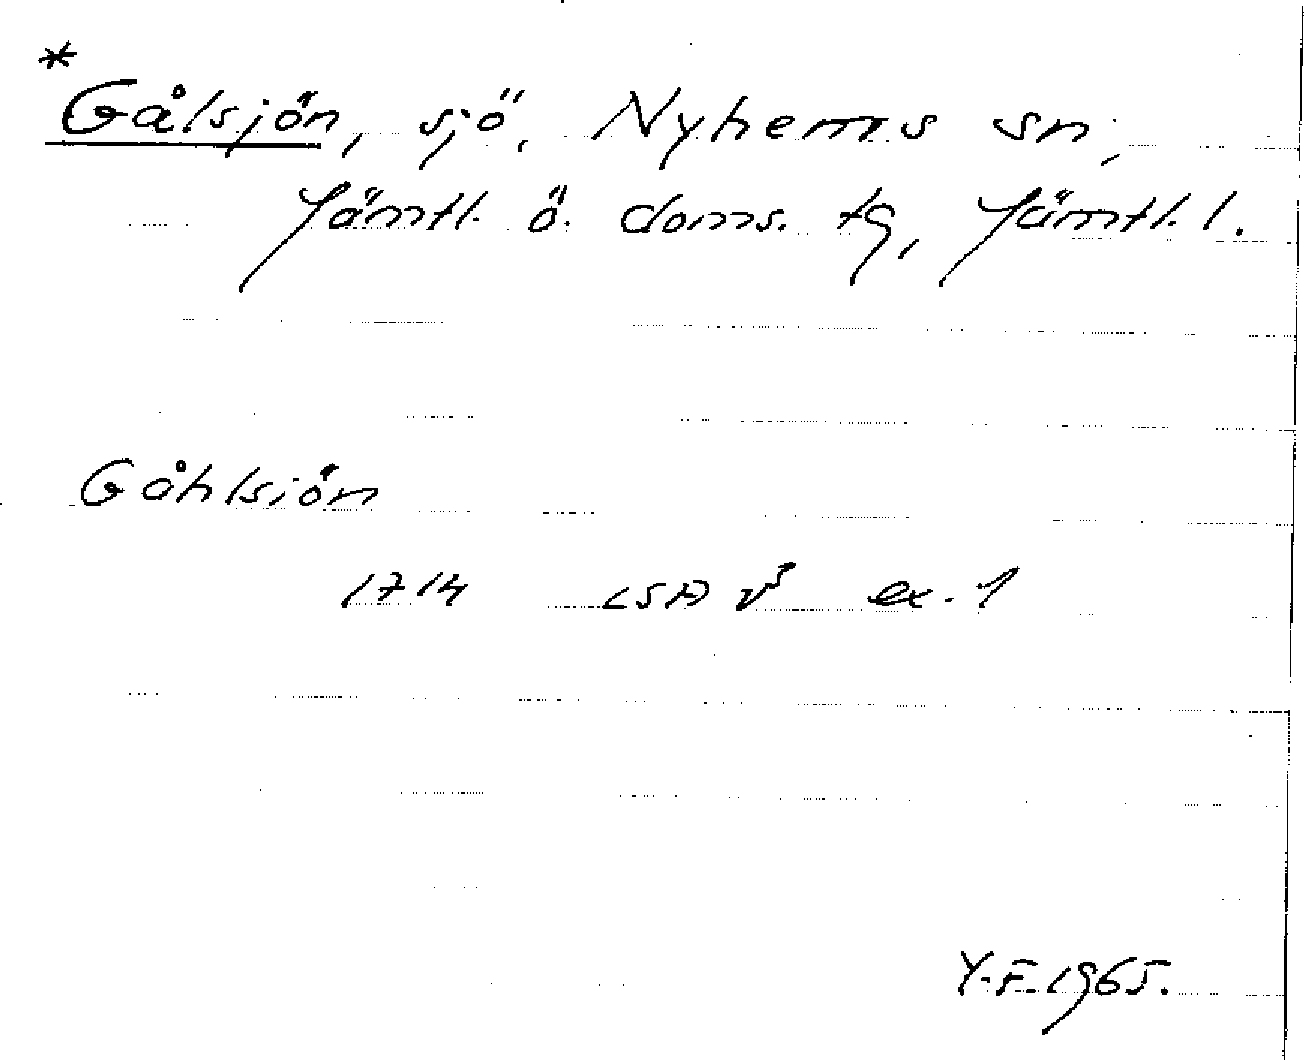 *
Gålsjön, sjö, Nyhems sn,
Jämtl. ö. doms. tg, Jämtl. l.
Gåhlsiön
1714 LSA ex. 1
Y.F. 1965.